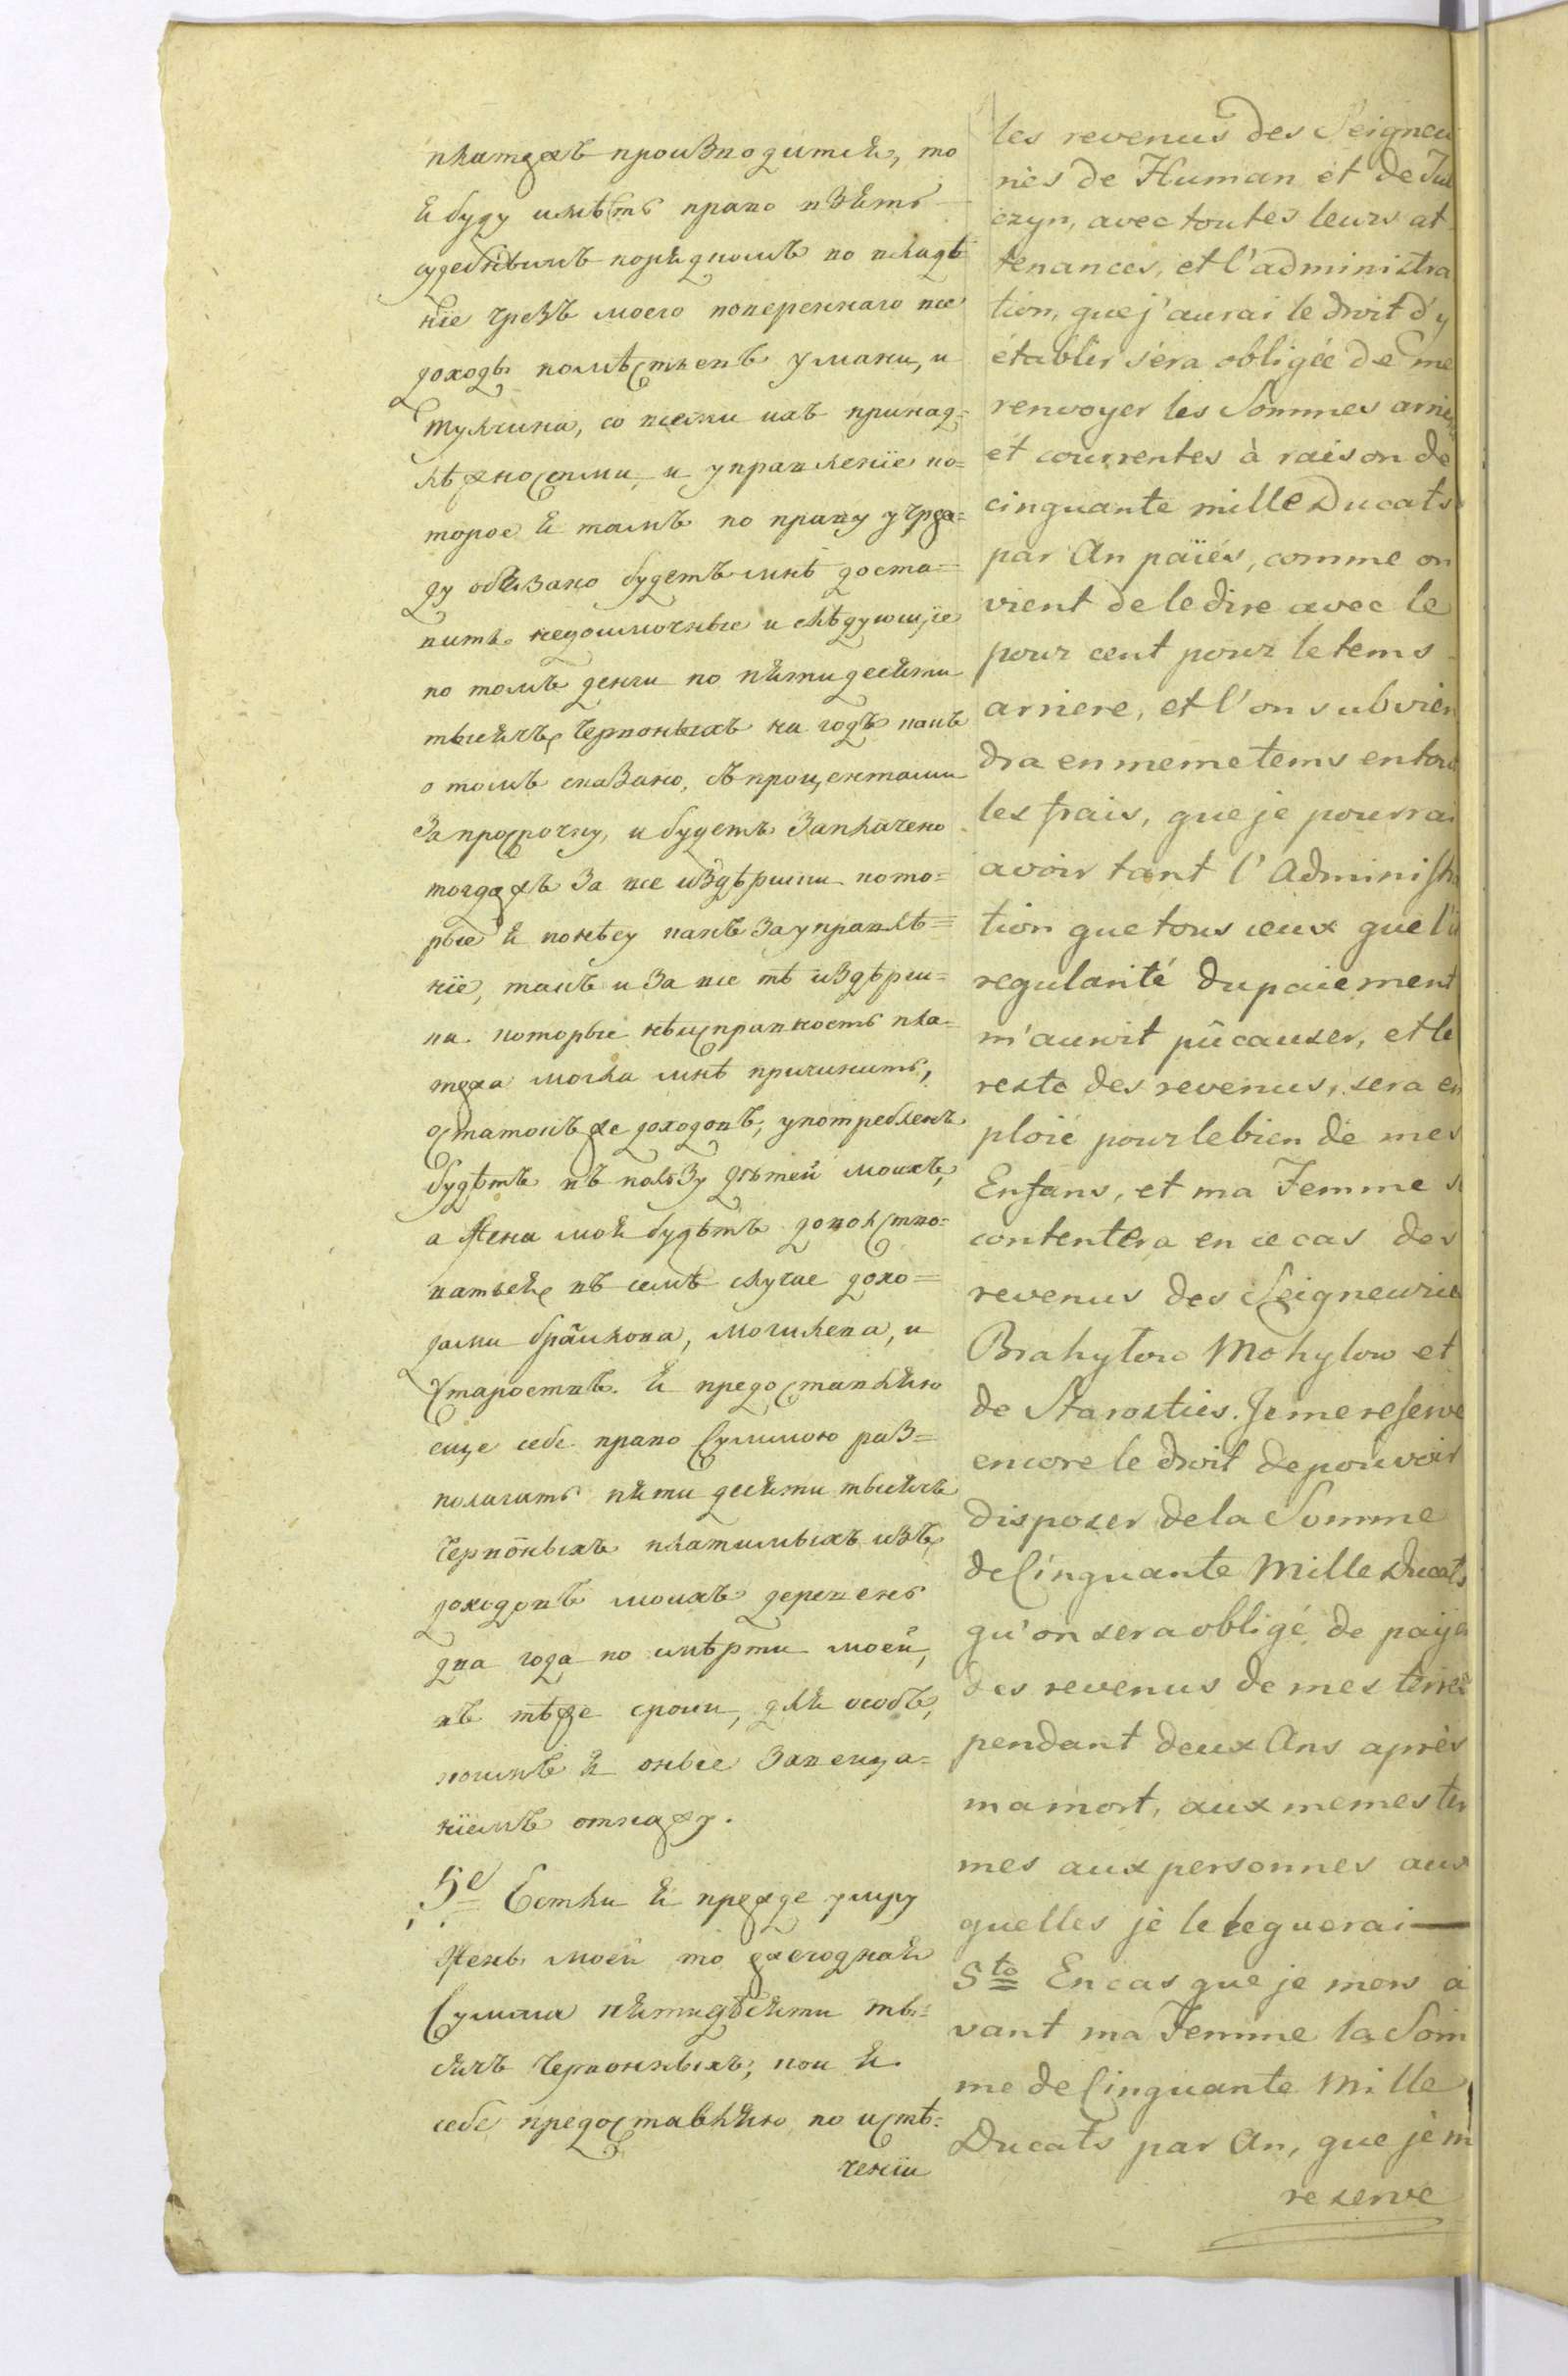 платежъ производится, то
я буду имѣть право взять
судебнымъ порядкомъ во владѣ
ніе чрезъ моего повереннаго все
доходы помѣстьевъ Умани, и
Тульчина, со всеми ихъ принад=
лѣжностьми, и управленіе ко=
торое я тамъ по праву учреж=
ду обязано будетъ мнѣ доста=
вить недоимочные и слѣдующіе
по томъ денги по пятидесяти
тысячъ червоныхъ на годъ какъ
о томъ сказано, съ процентами
за просрочку, и будетъ заплачено
тогдажъ за все издѣршки кото=
рые я понѣсу какъ за управлѣ=
ніе, такъ и за все тѣ издѣрш=
ка которые нѣисправность пла=
тежа могла мнѣ причинить,
остатокъ же доходовъ, употребленъ
будѣтъ въ пользу дѣтей моихъ,
а жена моя будѣтъ доволство=
ватьсе въ семъ случае дохо=
дами браилова, могилева, и
Староствъ. Я предоставляю
еще себе право суммою раз=
полагать пяти десяти тысячъ
червоныхъ платимыхъ изъ
доходовъ моихъ деревень
два года по смѣрти моей,
въ тѣже сроки, для особъ,
коимъ я оные завеща=
ніемъ откажу.
5е Естли я прежде умру
жены моей то ежегодная
Сумма пятидѣсяти ты=
сячъ червонныхъ, кои я
себе предоставляю по истѣ=
ченіи
les revenus des Seigneu
ries de Human et de Tul
czyn, avec toutes leurs at
tenances, et l'administra
tion, que j'aurai le droit d'y
établir sera obligée de me
renvoyer les Sommes arrie
et courrentes à raison de
cinquante mille Ducats
par An païés, comme on
vient de le dire avec le
pour cent pour le tems
arriere, et l'on subvien
dra en meme tems en tou
les frais, que je pourrai
avoir tant l'Administra
tion que tous ceux que l'i
regularité du paiement
m'auroit pû causer, et le
reste des revenus, sera em
ploié pour le bien de mes
Enfans, et ma Femme s
contentera en ce cas des
revenus des Seigneurie
Brahytow Mohylow et
de Starosties. Je me reserve
encore le droit de pouvoir
disposer de la Somme
de Cinquante Mille Ducats
qu'on sera obligé de païe
des revenus de mes terres
pendant deux Ans après
ma mort, aux memes ter
mes aux personnes aux
quelles je le leguerai —
5to En cas que je mers a
vant ma Femme la Som
me de Cinquante Mille
Ducats par An, que je m
reserve